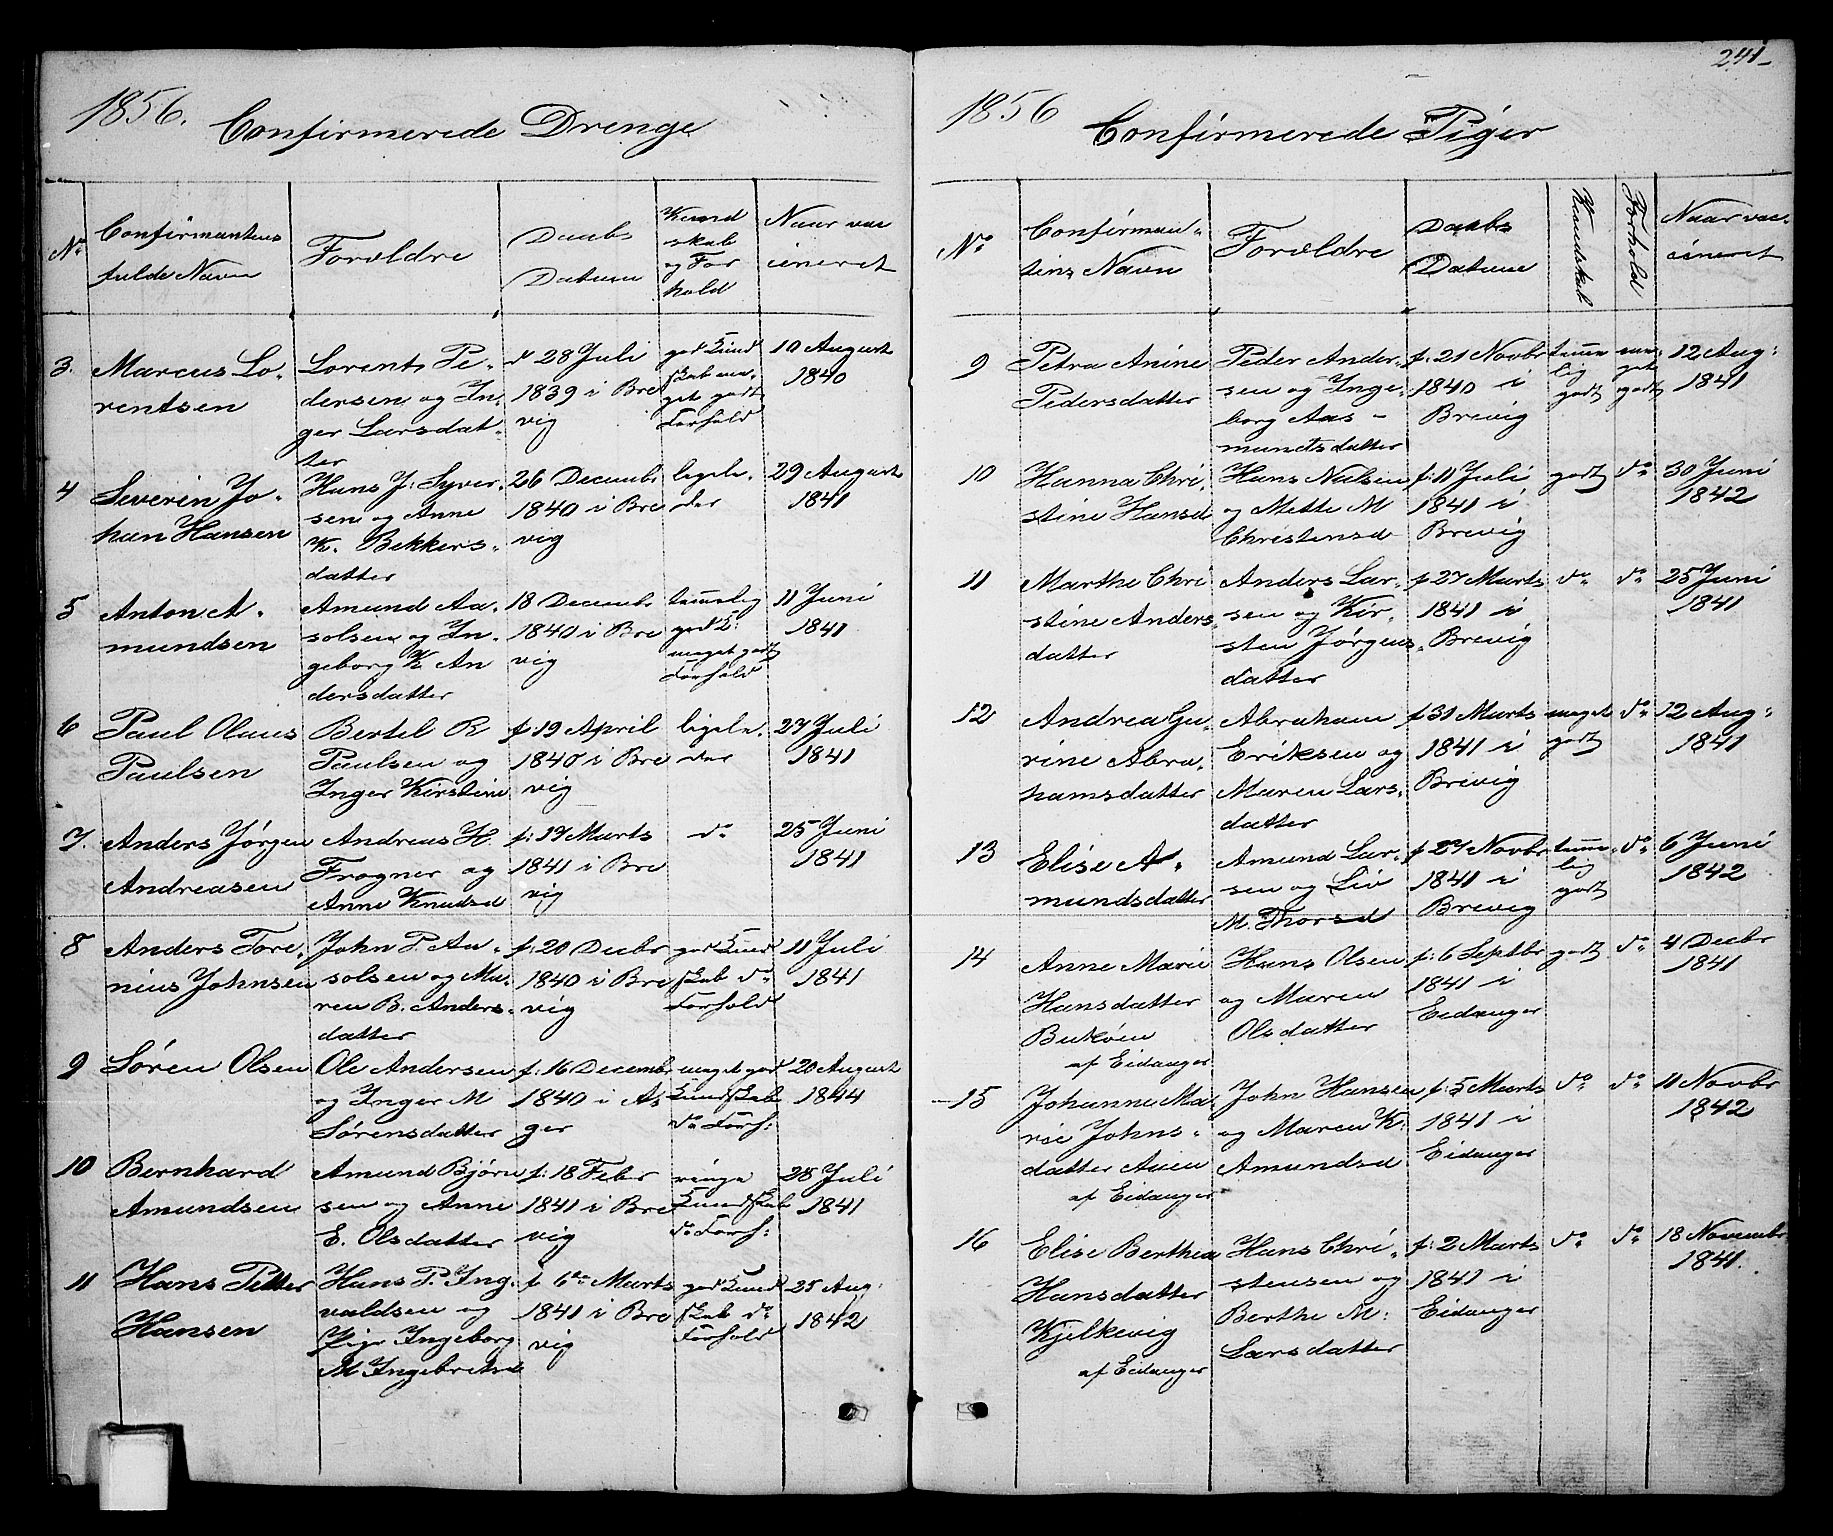 1856.
Confirmerede Drenge
No
Confirmantens
fulde Navn
Forældre
Daabs
Datum
Kund
skab
og For
hold
Naar vac
cineret
3.
Marcus Lo-
rentsen
Lorents Pe-
dersen og In-
ger Larsdat-
ter
d 28 Juli
1839 i Bre
vig
god Kund
skab me-
get godt
Forhold
10 August
1840
4
Severin Jo-
han Hansen
Hans J. Syver-
sen og Anne
K. Bekkers-
datter
26 Decemb.
1840 i Bre
vig
ligele-
des
29 August
1841
5
Anton A-
mundsen
Amund Aa-
solsen og In-
geborg K. An
dersdatter
18 Decembr
1840 i Bre
vig
temmelig
god K:
meget godt
Forhold
11 Juni
1841
6
Paul Olaus
Paulsen
Bertel R
Paulsen og
Inger Kirstine
f. 19 April
1840 i Bre
vig
ligele-
des
27 Juli
1841
7.
Anders Jørgen
Andreasen
Andreas H.
Frogner og
Anne Knudsd
f: 17 Marts
1841 i Bre
vig
do
25 Juni
1841
8
Anders Tore-
nius Johnsen
John P. Aa-
solsen og Ma-
ren B. Anders-
datter
f: 20 Decbr
1840 i Bre
vig
god Kund
skab do
Forhold
11 Juli
1841
9
Søren Olsen
Ole Andersen
og Inger M
Sørensdatter
f: 16 Decembr
1840 i As
ger
meget god
Kundskab
do Forh:
20 August
1844
10
Bernhard
Amundsen
Amund Bjørn
sen og Anne
E. Olsdatter
f: 18 Febr
1841 i Bre
vig
ringe
Kundskab
do Forh:
28 Juli
1841
11
Hans Petter
Hansen
Hans P. Ing-
valdsen og
Pige Ingeborg
M Ingebretsd
f 6te Marts
1841 i Bre
vig
god Kund
skab do
Forhold
25 Aug:
1842
241
1856
Confirmerede Piger
No
Confirman-
tens Navn
Forældre
Daabs
Datum
Kundskab
Forhold
Naar vac-
cineret
9
Petra Anine
Pedersdatter
Peder Ander-
sen og Inge-
borg Aas-
mundsdatter
f: 21 Novbr
1840 i
Brevig
temme
lig
godt
me-
get
godt
12 Aug:
1841
10
Hanna Chri-
stine Hansd
Hans Nielsen
og Mette M
Christensd
f: 11 Juli
1841 i
Brevig
godt
do
30 Juni
1842
11
Marthe Chri
stine Anders-
datter
Anders Lar-
sen og Kir-
sten Jørgens-
datter
f 27 Marts
1841 i
Brevig
do
do
25 Juni
1841
12
Andrea Gu-
rine Abra-
hamsdatter
Abraham
Eriksen og
Maren Lars-
datter
f 31 Marts
1841 i
Brevig
meget
godt
do
12 Aug:
1841
13
Elise A-
mundsdatter
Amund Lar-
sen og Liv
M. Thorsd
f 27 Novbr
1841 i
Brevig
temme-
lig
godt
do
6 Juni
1842
14
Anne Marie
Hansdatter
af Eidanger
Hans Olsen
og Maren
Olsdatter
f: 6 Septbr
1841 i
Eidanger
godt
do
4 Decbr
1841
15
Johanne Ma-
rie Johns-
datter Auen
af Eidanger
John Hansen
og Maren K.
Amundsd
f: 5 Marts
1841 i
Eidanger
do
do
11 Novbr
1842
16
Elise Berthea
Hansdatter
Kjelkevig
af Eidanger
Hans Chri-
stensen og
Berthe M:
Larsdatter
f: 2 Marts
1841 i
Eidanger
do
do
18 Novembr
1841.